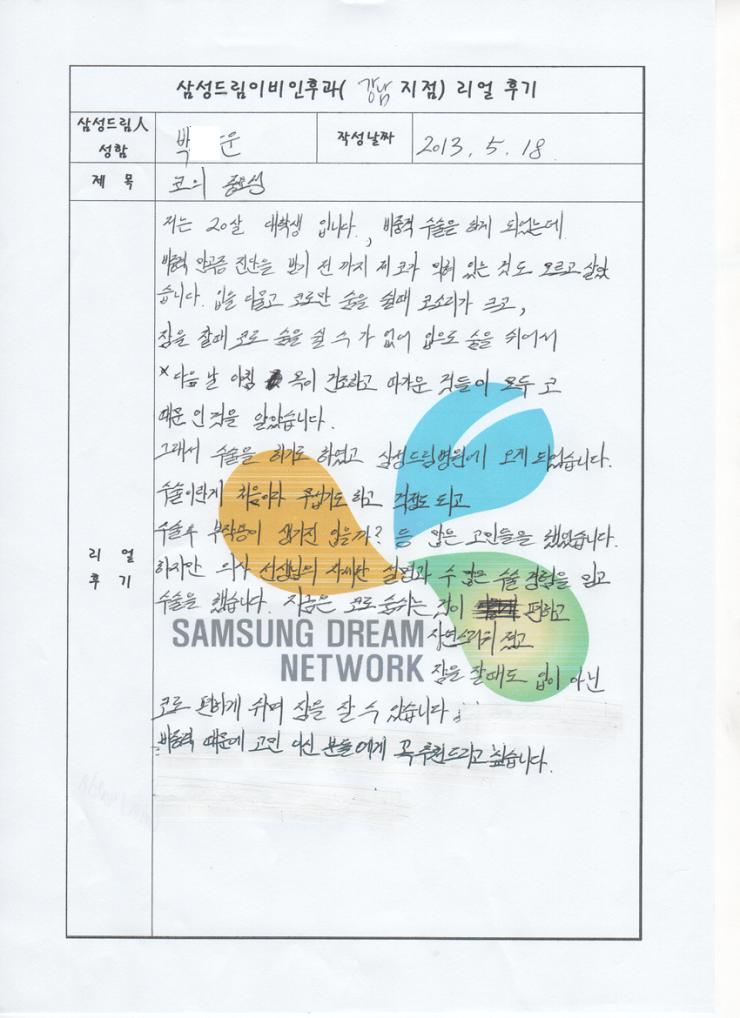 삼성드림이비인후과( 강남 지점) 리얼 후기
삼성드림人 성함
박 운
작성날짜
2013. 5. 18.
제 목
코의 중요성
리 얼
후 기
저는 20살 대학생 입니다., 비중격 수술을 하게 되었는데
비중격 만곡증 진단을 받기 전 까지 제 코가 막혀 있는 것도 모르고 살았
습니다. 입을 다물고 코로만 숨을 쉴때 코소리가 크고,
잠을 잘때 코로 숨을 쉴 수 가 없어 입으로 숨을 쉬어서
*다음 날 아침 목이 건조하고 따가운 것들이 모두 코
때문 인 것을 알았습니다.
그래서 수술을 하기로 하였고 삼성드림병원에 오게 되었습니다.
수술이란게 처음이라 무섭기도 하고 걱정도 되고
수술후 부작용이 생기진 않을까? 등 많은 고민들을 했었습니다.
하지만 의사 선생님의 자세한 설명과 수 많은 수술 경력을 믿고
수술을 했습니다. 지금은 코로 숨쉬는 것이 편하고
자연스러워 졌고
SAMSUNG DREAM
NETWORK
잠을 잘때도 입이 아닌
코로 편하게 쉬며 잠을 잘 수 있습니다.
비중격 때문에 고민 이신 분들에게 꼭 추천드리고 싶습니다.